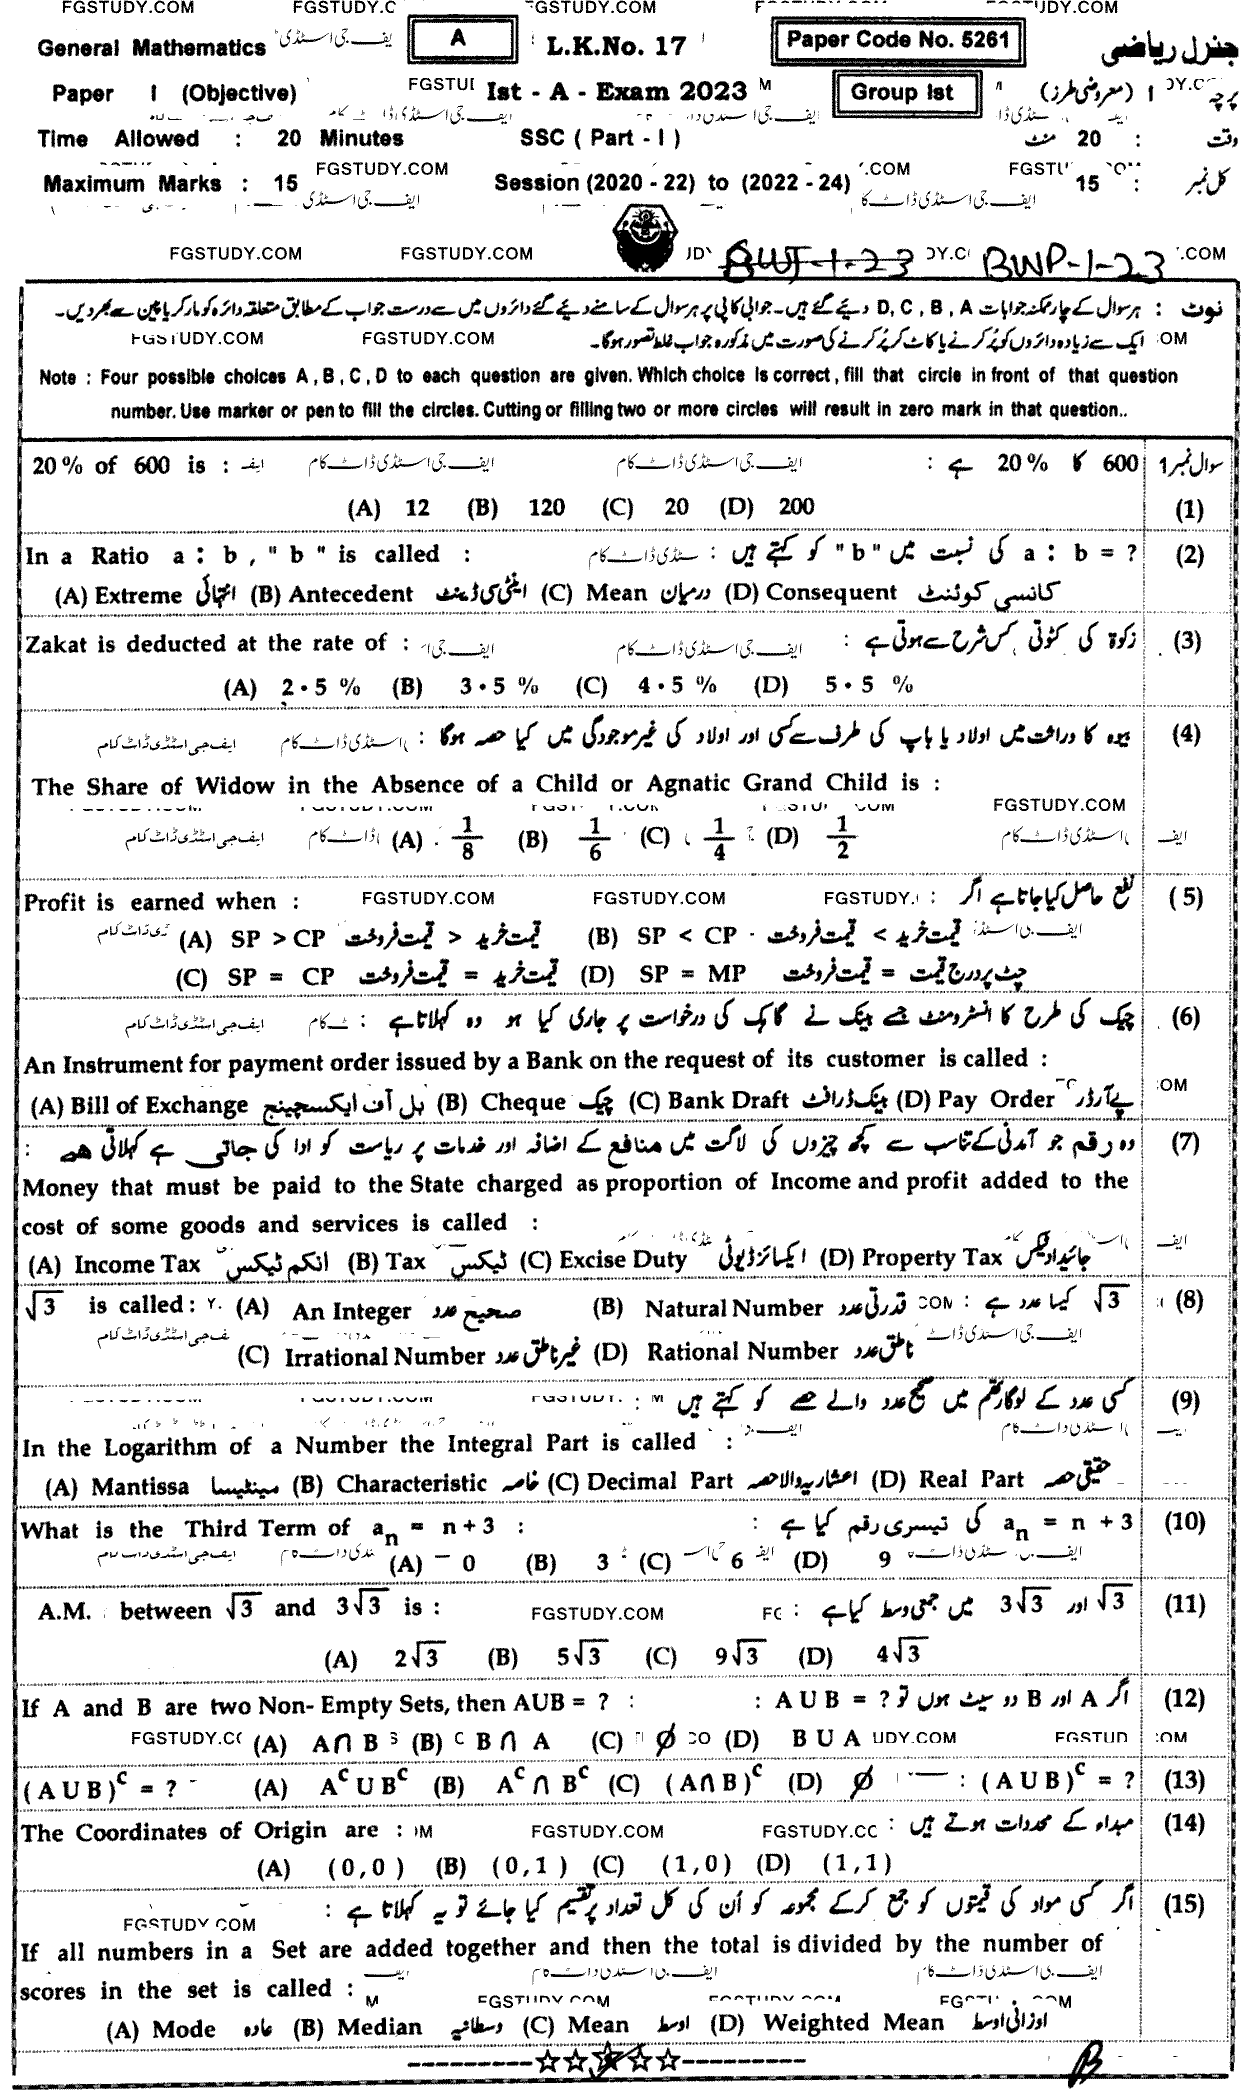 FGSTUDY.COM FGSTUDY.C FGSTUDY.COM FGSTUDY.COM
General Mathematics A L.K.No. 17 Paper Code No. 5261 جنرل ریاضی
Paper I (Objective) Ist - A - Exam 2023 Group Ist پرچہ I (معروضی طرز)
Time Allowed : 20 Minutes SSC ( Part - I ) وقت : 20 منٹ
FGSTUDY.COM
Maximum Marks : 15 Session (2020 - 22) to (2022 - 24) کل نمبر : 15
FGSTUDY.COM FGSTUDY.COM BWP-1-23
نوٹ : ہر سوال کے چار ممکنہ جوابات A , B , C , D دیئے گئے ہیں۔ جوابی کاپی پر ہر سوال کے سامنے دیئے گئے دائروں میں سے درست جواب کے مطابق متعلقہ دائرہ کو مارکر یا پین سے بھر دیں۔
ایک سے زیادہ دائروں کو پُر کرنے یا کاٹ کر پُر کرنے کی صورت میں مذکورہ جواب غلط تصور ہوگا۔
FGSTUDY.COM FGSTUDY.COM
Note : Four possible choices A , B , C , D to each question are given. Which choice is correct , fill that circle in front of that question
number. Use marker or pen to fill the circles. Cutting or filling two or more circles will result in zero mark in that question..
20 % of 600 is : 600 کا 20 % ہے : سوال نمبر 1
(A) 12 (B) 120 (C) 20 (D) 200 (1)
In a Ratio a : b , " b " is called : a : b = ? کی نسبت میں "b" کو کہتے ہیں : (2)
(A) Extreme انتہائی (B) Antecedent اینٹی سی ڈینٹ (C) Mean درمیان (D) Consequent کانسی کوئنٹ
Zakat is deducted at the rate of : زکوٰۃ کی کٹوتی کس شرح سے ہوتی ہے : (3)
(A) 2 . 5 % (B) 3 . 5 % (C) 4 . 5 % (D) 5 . 5 %
بیوہ کا وراثت میں اولاد یا باپ کی طرف سے کسی اور اولاد کی غیر موجودگی میں کیا حصہ ہوگا : (4)
The Share of Widow in the Absence of a Child or Agnatic Grand Child is :
FGSTUDY.COM
(A) 1/8 (B) 1/6 (C) 1/4 (D) 1/2
Profit is earned when : FGSTUDY.COM FGSTUDY.COM نفع حاصل کیا جاتا ہے اگر : (5)
(A) SP > CP قیمت خرید < قیمت فروخت (B) SP < CP قیمت خرید > قیمت فروخت
(C) SP = CP قیمت خرید = قیمت فروخت (D) SP = MP چٹ پر درج قیمت = قیمت فروخت
چیک کی طرح کا انسٹرومنٹ جسے بینک نے گاہک کی درخواست پر جاری کیا ہو وہ کہلاتا ہے : (6)
An Instrument for payment order issued by a Bank on the request of its customer is called :
(A) Bill of Exchange بل آف ایکسچینج (B) Cheque چیک (C) Bank Draft بینک ڈرافٹ (D) Pay Order پے آرڈر
وہ رقم جو آمدنی کے تناسب سے کچھ چیزوں کی لاگت میں منافع کے اضافہ اور خدمات پر ریاست کو ادا کی جاتی ہے کہلاتی ہے : (7)
Money that must be paid to the State charged as proportion of Income and profit added to the
cost of some goods and services is called :
(A) Income Tax انکم ٹیکس (B) Tax ٹیکس (C) Excise Duty ایکسائز ڈیوٹی (D) Property Tax جائیداد ٹیکس
√3 is called : (A) An Integer صحیح عدد (B) Natural Number قدرتی عدد √3 کیسا عدد ہے : (8)
(C) Irrational Number غیر ناطق عدد (D) Rational Number ناطق عدد
کسی عدد کے لوگارتھم میں صحیح عدد والے حصے کو کہتے ہیں (9)
In the Logarithm of a Number the Integral Part is called :
(A) Mantissa مینٹیسا (B) Characteristic خاصہ (C) Decimal Part اعشاریہ والا حصہ (D) Real Part حقیقی حصہ
What is the Third Term of aₙ = n + 3 : aₙ = n + 3 کی تیسری رقم کیا ہے : (10)
(A) 0 (B) 3 (C) 6 (D) 9
A.M. between √3 and 3√3 is : FGSTUDY.COM √3 اور 3√3 میں جمعی وسط کیا ہے : (11)
(A) 2√3 (B) 5√3 (C) 9√3 (D) 4√3
If A and B are two Non- Empty Sets, then AUB = ? : اگر A اور B دو سیٹ ہوں تو A U B = ? : (12)
(A) A∩B (B) B∩A (C) ∅ (D) B U A
( A U B )ᶜ = ? (A) Aᶜ U Bᶜ (B) Aᶜ ∩ Bᶜ (C) (A∩B)ᶜ (D) ∅ : ( A U B )ᶜ = ? (13)
The Coordinates of Origin are : FGSTUDY.COM مبداء کے محددات ہوتے ہیں : (14)
(A) ( 0 , 0 ) (B) ( 0 , 1 ) (C) ( 1 , 0 ) (D) ( 1 , 1 )
اگر کسی مواد کی قیمتوں کو جمع کر کے مجموعہ کو اُن کی کل تعداد پر تقسیم کیا جائے تو یہ کہلاتا ہے : (15)
FGSTUDY.COM
If all numbers in a Set are added together and then the total is divided by the number of
scores in the set is called :
(A) Mode عادہ (B) Median وسطانیہ (C) Mean اوسط (D) Weighted Mean اوزانی اوسط
---------☆☆☆☆☆---------
B